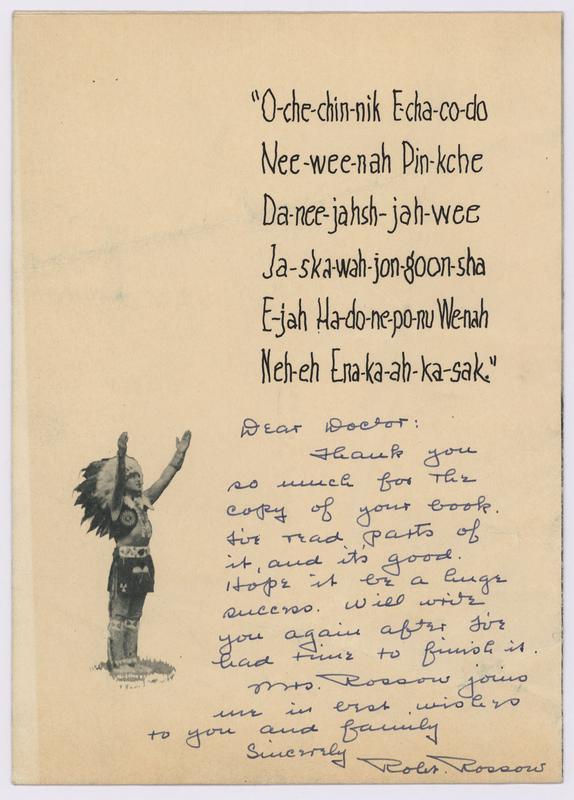 "O-che-chin-nik E-cha-co-do
Nee-wee-nah Pin-kche
Da-nee-jahsh-jah-wee
Ja-ska-wah-jon-goon-sha
E-jah Ha-do-ne-po-nu We-nah
Neh-eh Ena-ka-ah-ka-sak."
Dear Doctor:
Thank you
so much for the
copy of your book.
I've read parts of
it, and it's good.
Hope it be a huge
success. Will write
you again after I've
had time to finish it.
Mrs. Rossow joins
me in best wishes
to you and family
Sincerely
Robt. Rossow